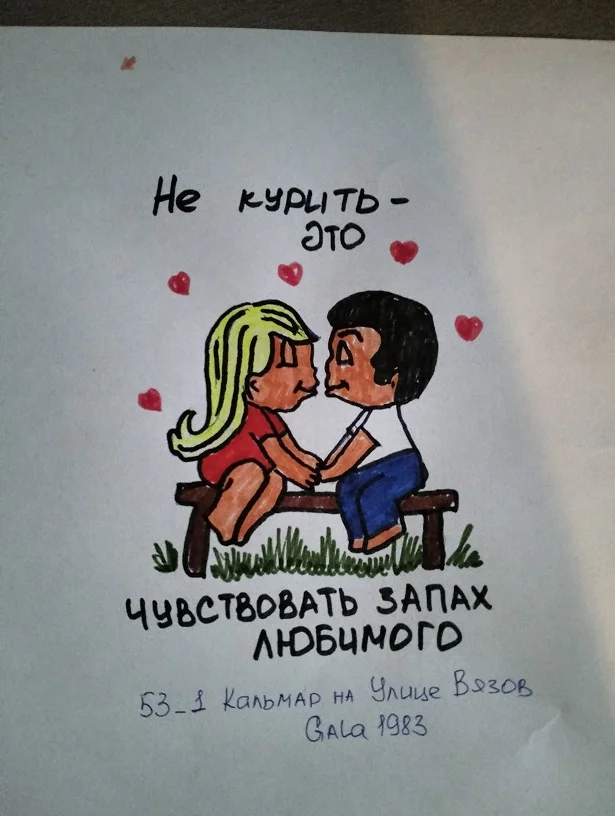 Не курить -
это
чувствовать запах
любимого
53_1 Кальмар на Улице Вязов
Gala 1983